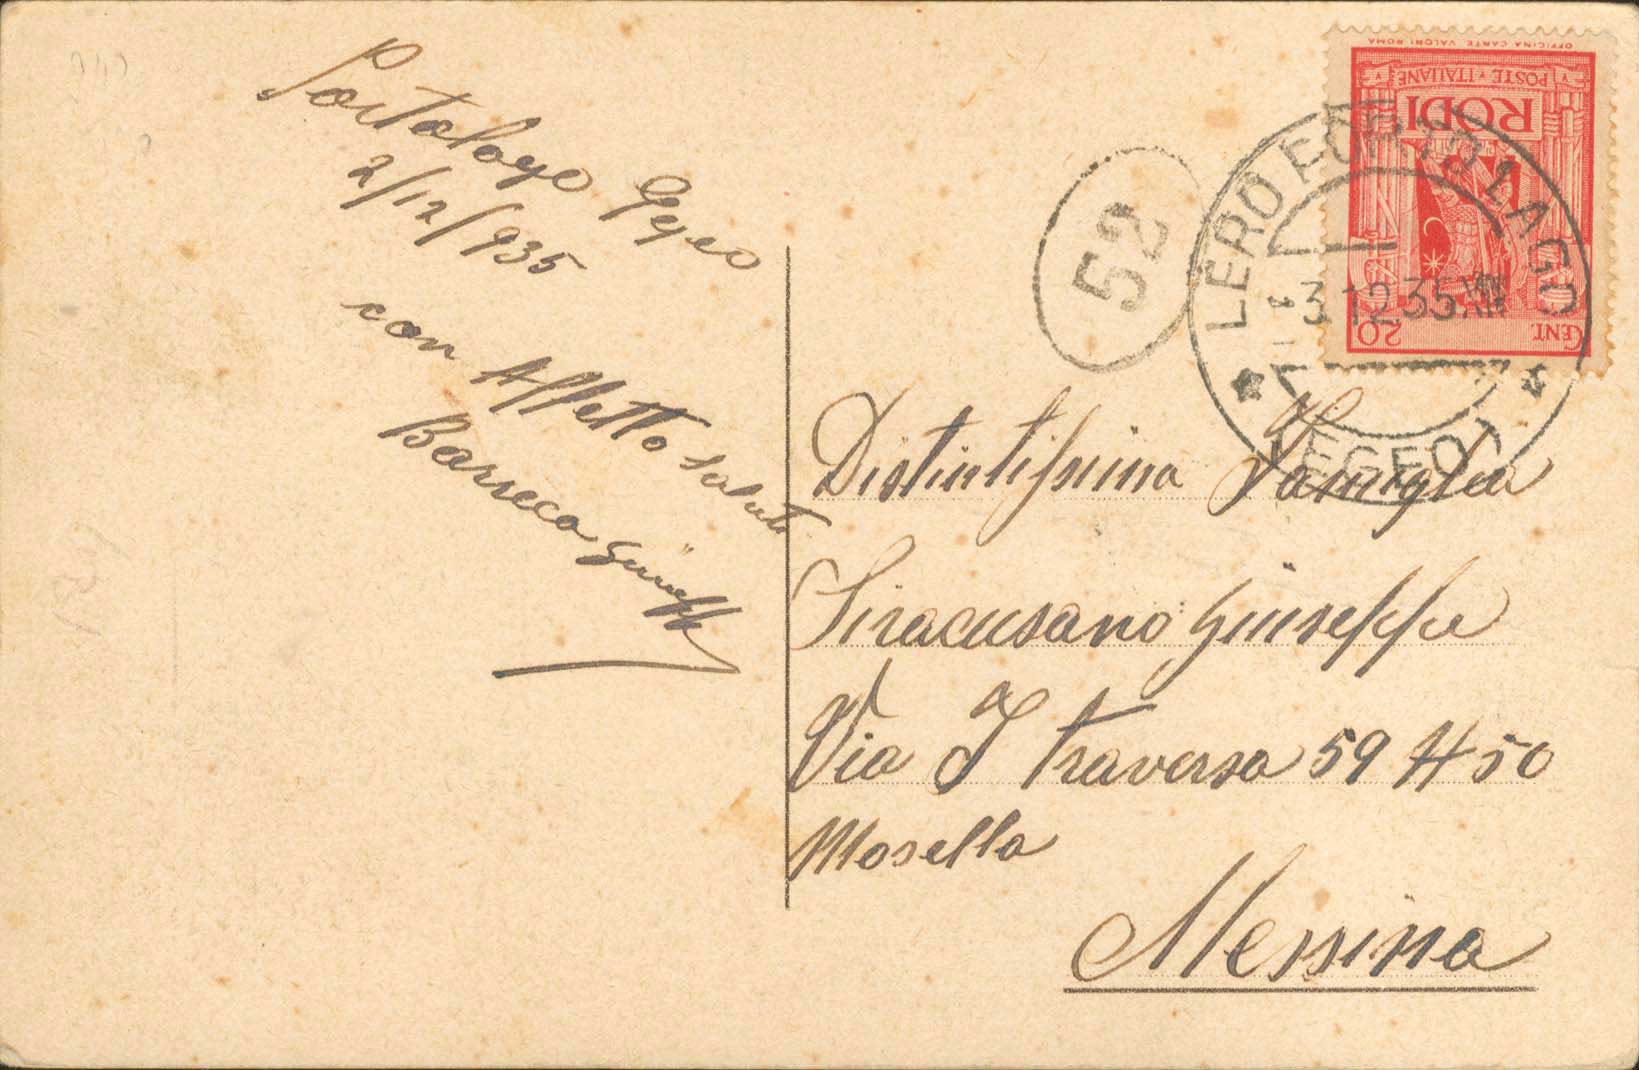 Portolago Egeo
2/12/935
con Affetto saluti
Barreca Giuseppe
OFFICINA CARTE VALORI ROMA
POSTE ITALIANE
RODI
CENT. 20
LERO PORTOLAGO
3.12.35.XIV
(EGEO)
52
Distintissima Famiglia
Siracusano Giuseppe
Via I traversa 59 H 50
Mosella
Messina